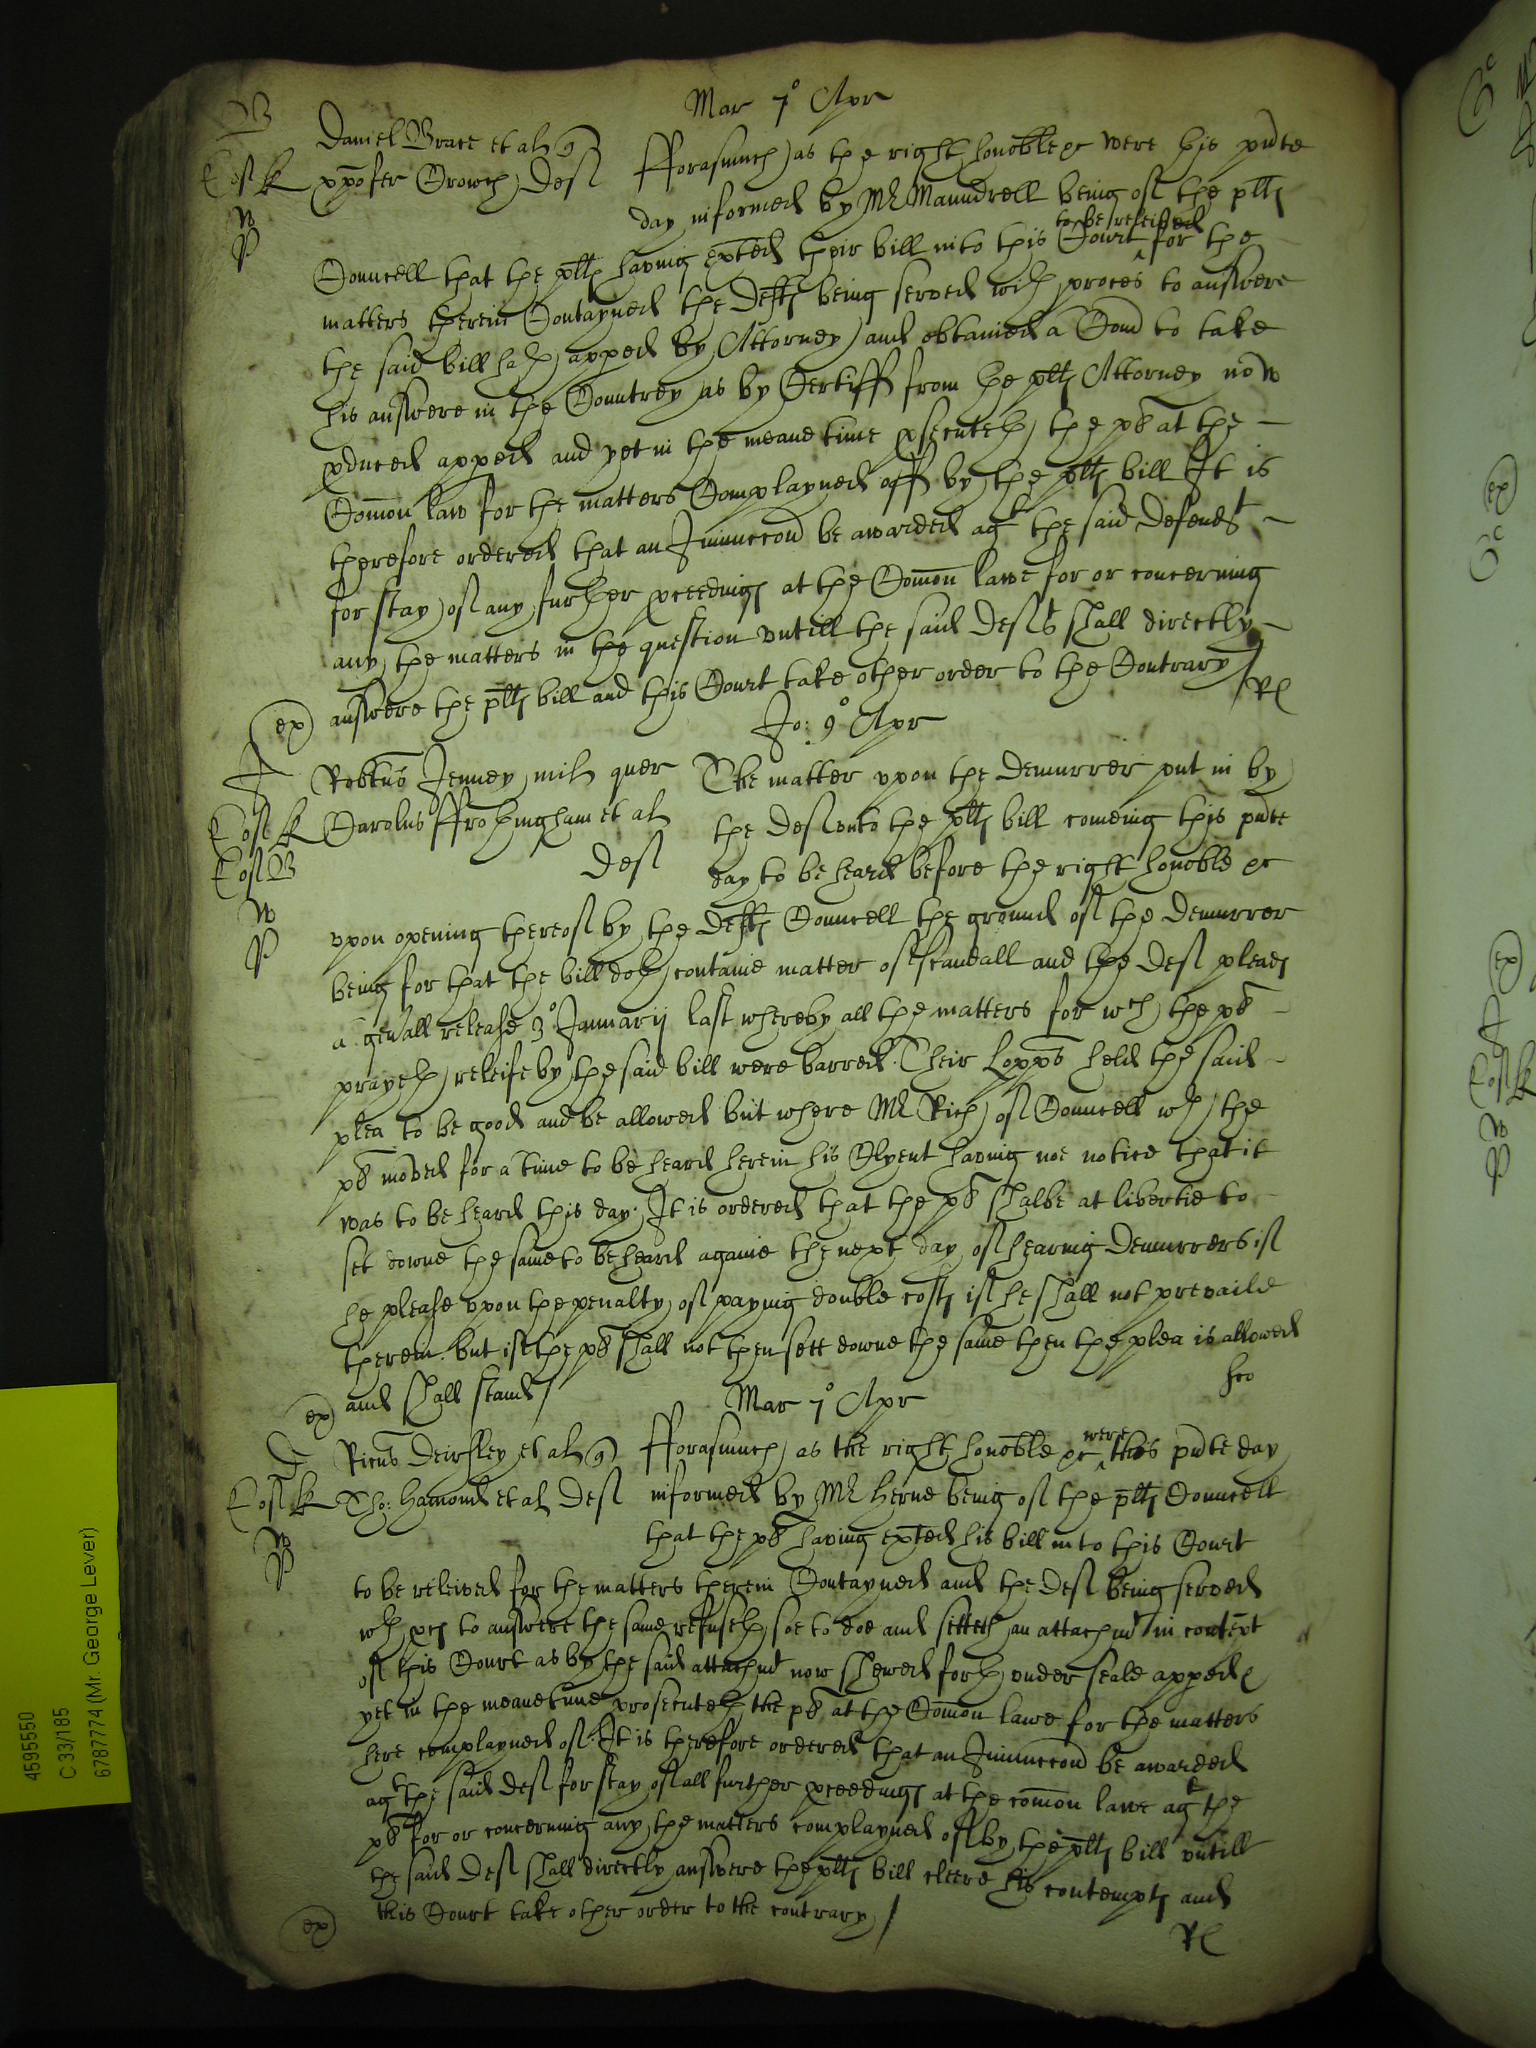 Mar 7° Apr
B
Daniel Brace et al q
fforasmuch as the right honoble &c were this pñte
Cos k xpofer Crowch Def
day informed by Mr Maundrell being of the plts
P
Councell that the plts having exted their bill into this Court to be releived for the
matters therein Contayned the Defts being served wth proces to answere
the said bill hath apped by Attorney and obtained a Com to take
his answere in the Countrey as by Certiff from the plts Attorney now
pduced apped and yet in the meane time psecuteth the pt at the
Comon law for the matters Complayned off by the plts bill It is
therefore ordered that an Iniunccon be awarded agt the said defendts
for stay of any further pceedings at the Comon lawe for or concerning
any the matters in the question untill the said Defts shall directly
answere the plts bill and this Court take other order to the Contrary /
ex
Rl
Jo: 9° Apr
J
Robtus Jenney mil quer
The matter upon the Demurrer put in by
Cos k Carolus ffrothingham et al
the Def unto the plts bill comeing this pñte
Cos B
Def
day to be heard before the right honoble &c
P
upon opening thereof by the Defts Councell the ground of the Demurrer
being for that the bill doth containe matter of scandall and the Def pleads
a genall release 3° Januarij last whereby all the matters for wch the pt
prayeth releife by the said bill were barred. Their Lopps held the said
plea to be good and be allowed but where Mr Rich of Councell wth the
pt moved for a time to be heard herein his Clyent having noe notice that it
was to be heard this day. It is ordered that the pt shalbe at libertie to
set downe the same to be heard againe the next day of hearing Demurrers if
he please upon the penalty of paying double costs if he shall not prevaile
therein. but if the pt shall not then sett downe the same then the plea is allowed
and shall stand /
ex
Mar 7° Apr
D
Ricus Deirsley et al q
fforasmuch as the right honoble &c were this pñte day
Cos k Tho: Hamond et al Def
informed by Mr Herne being of the plts Councell
that the pt having exted his bill into this Court
P
to be releived for the matters therein Contayned and the Def being served
wth pcs to answere the same refuseth soe to doe and setteth an attachmt in contept
of this Court as by the said attachmt now shewed forth under seale apped
yet in the meane time prosecuteth the pt at the Comon lawe for the matters
here complayned of. It is therefore ordered that an Iniunccon be awarded
agt the said Def for stay of all further pceedings at the comon lawe agt the
pt for or concerning any the matters complayned of by the plts bill untill
the said Def shall directly answere the plts bill cleere his contempts and
this Court take other order to the contrary /
ex
Rl
4595550
C 33/185
6787774 (Mr. George Lever)